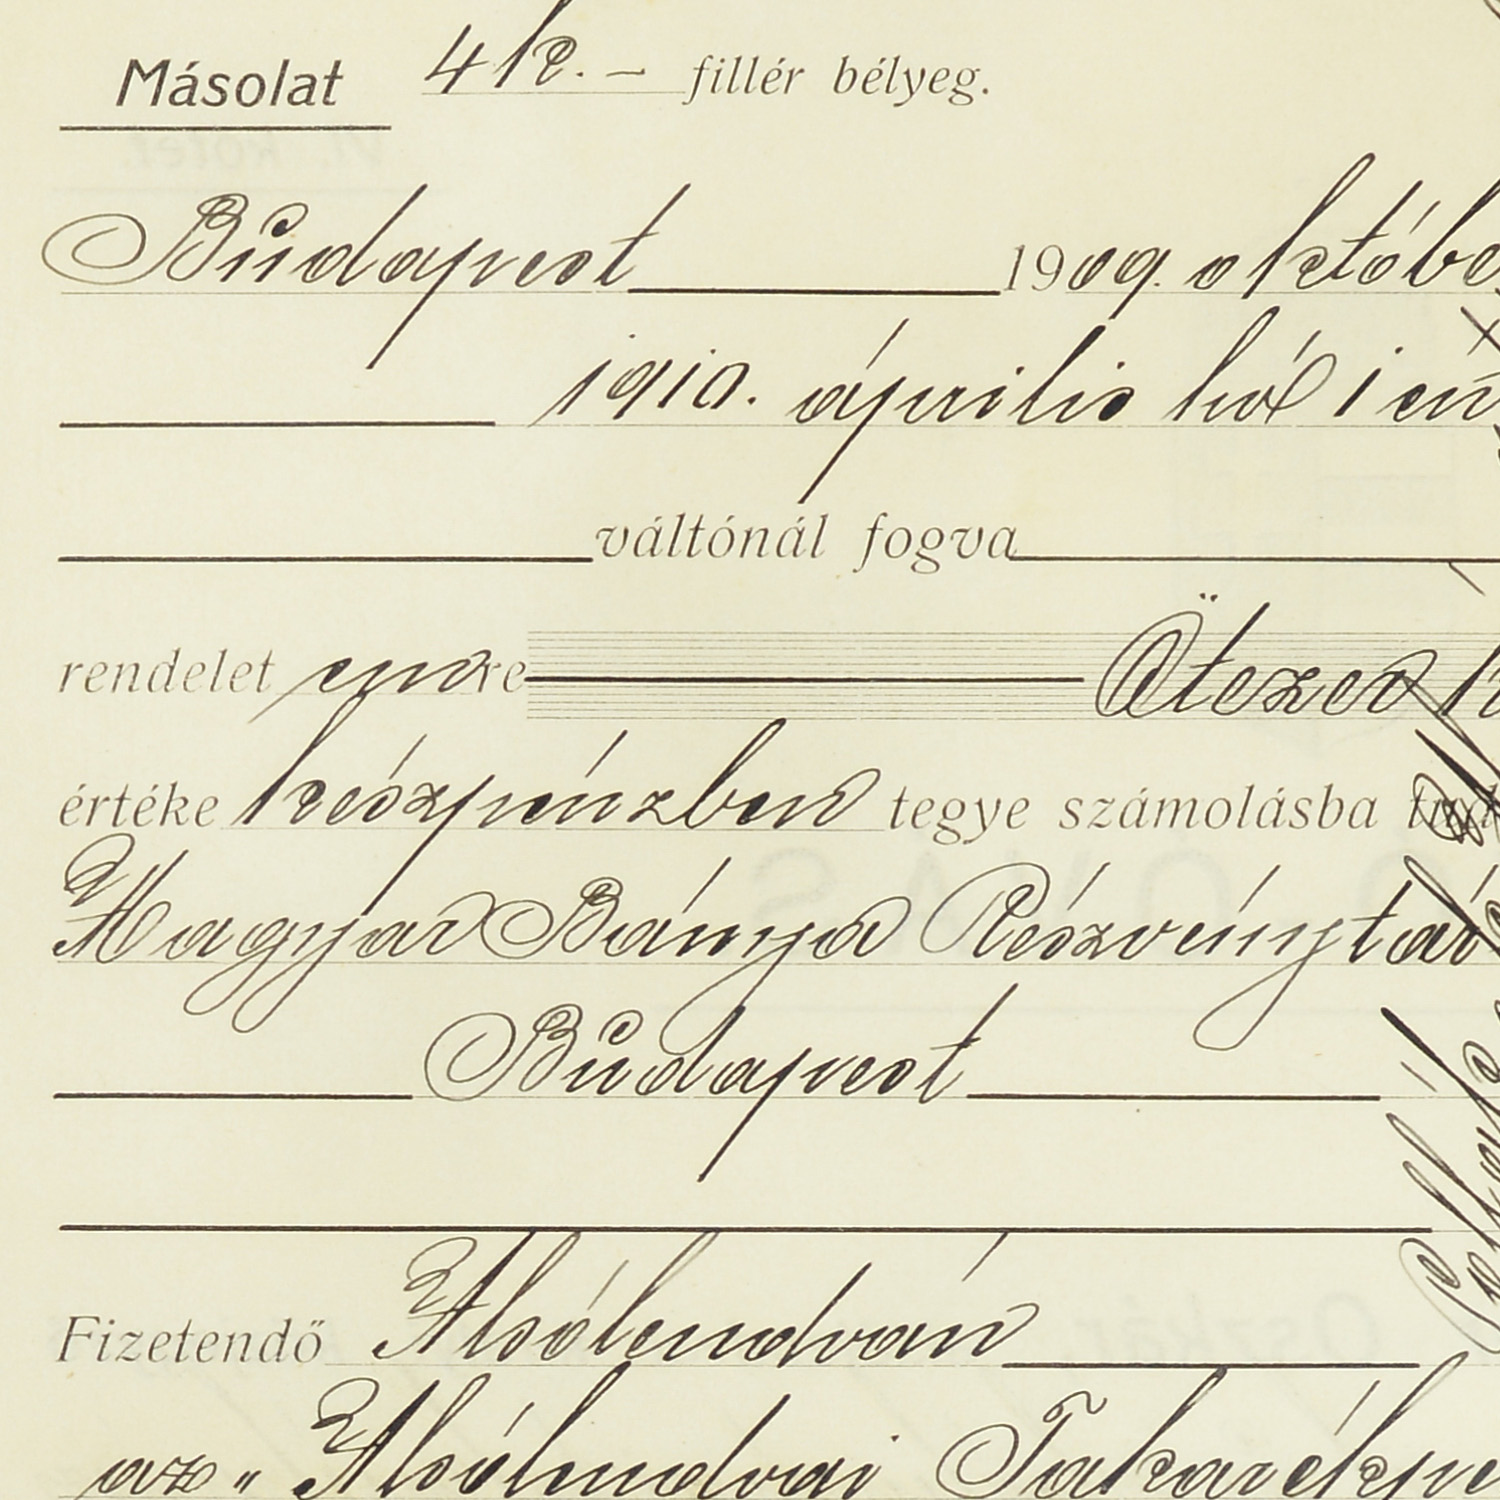 Másolat 4 k. – fillér bélyeg.
Budapest 1909. októbe
1910. április hó 1 én
váltónál fogva
rendelet emre Ötezer k
értéke készpénzben tegye számolásba
Magyar Bánya Részvénytár
Budapest
Fizetendő Alsólendván
az „Alsólendvai Takarékpé